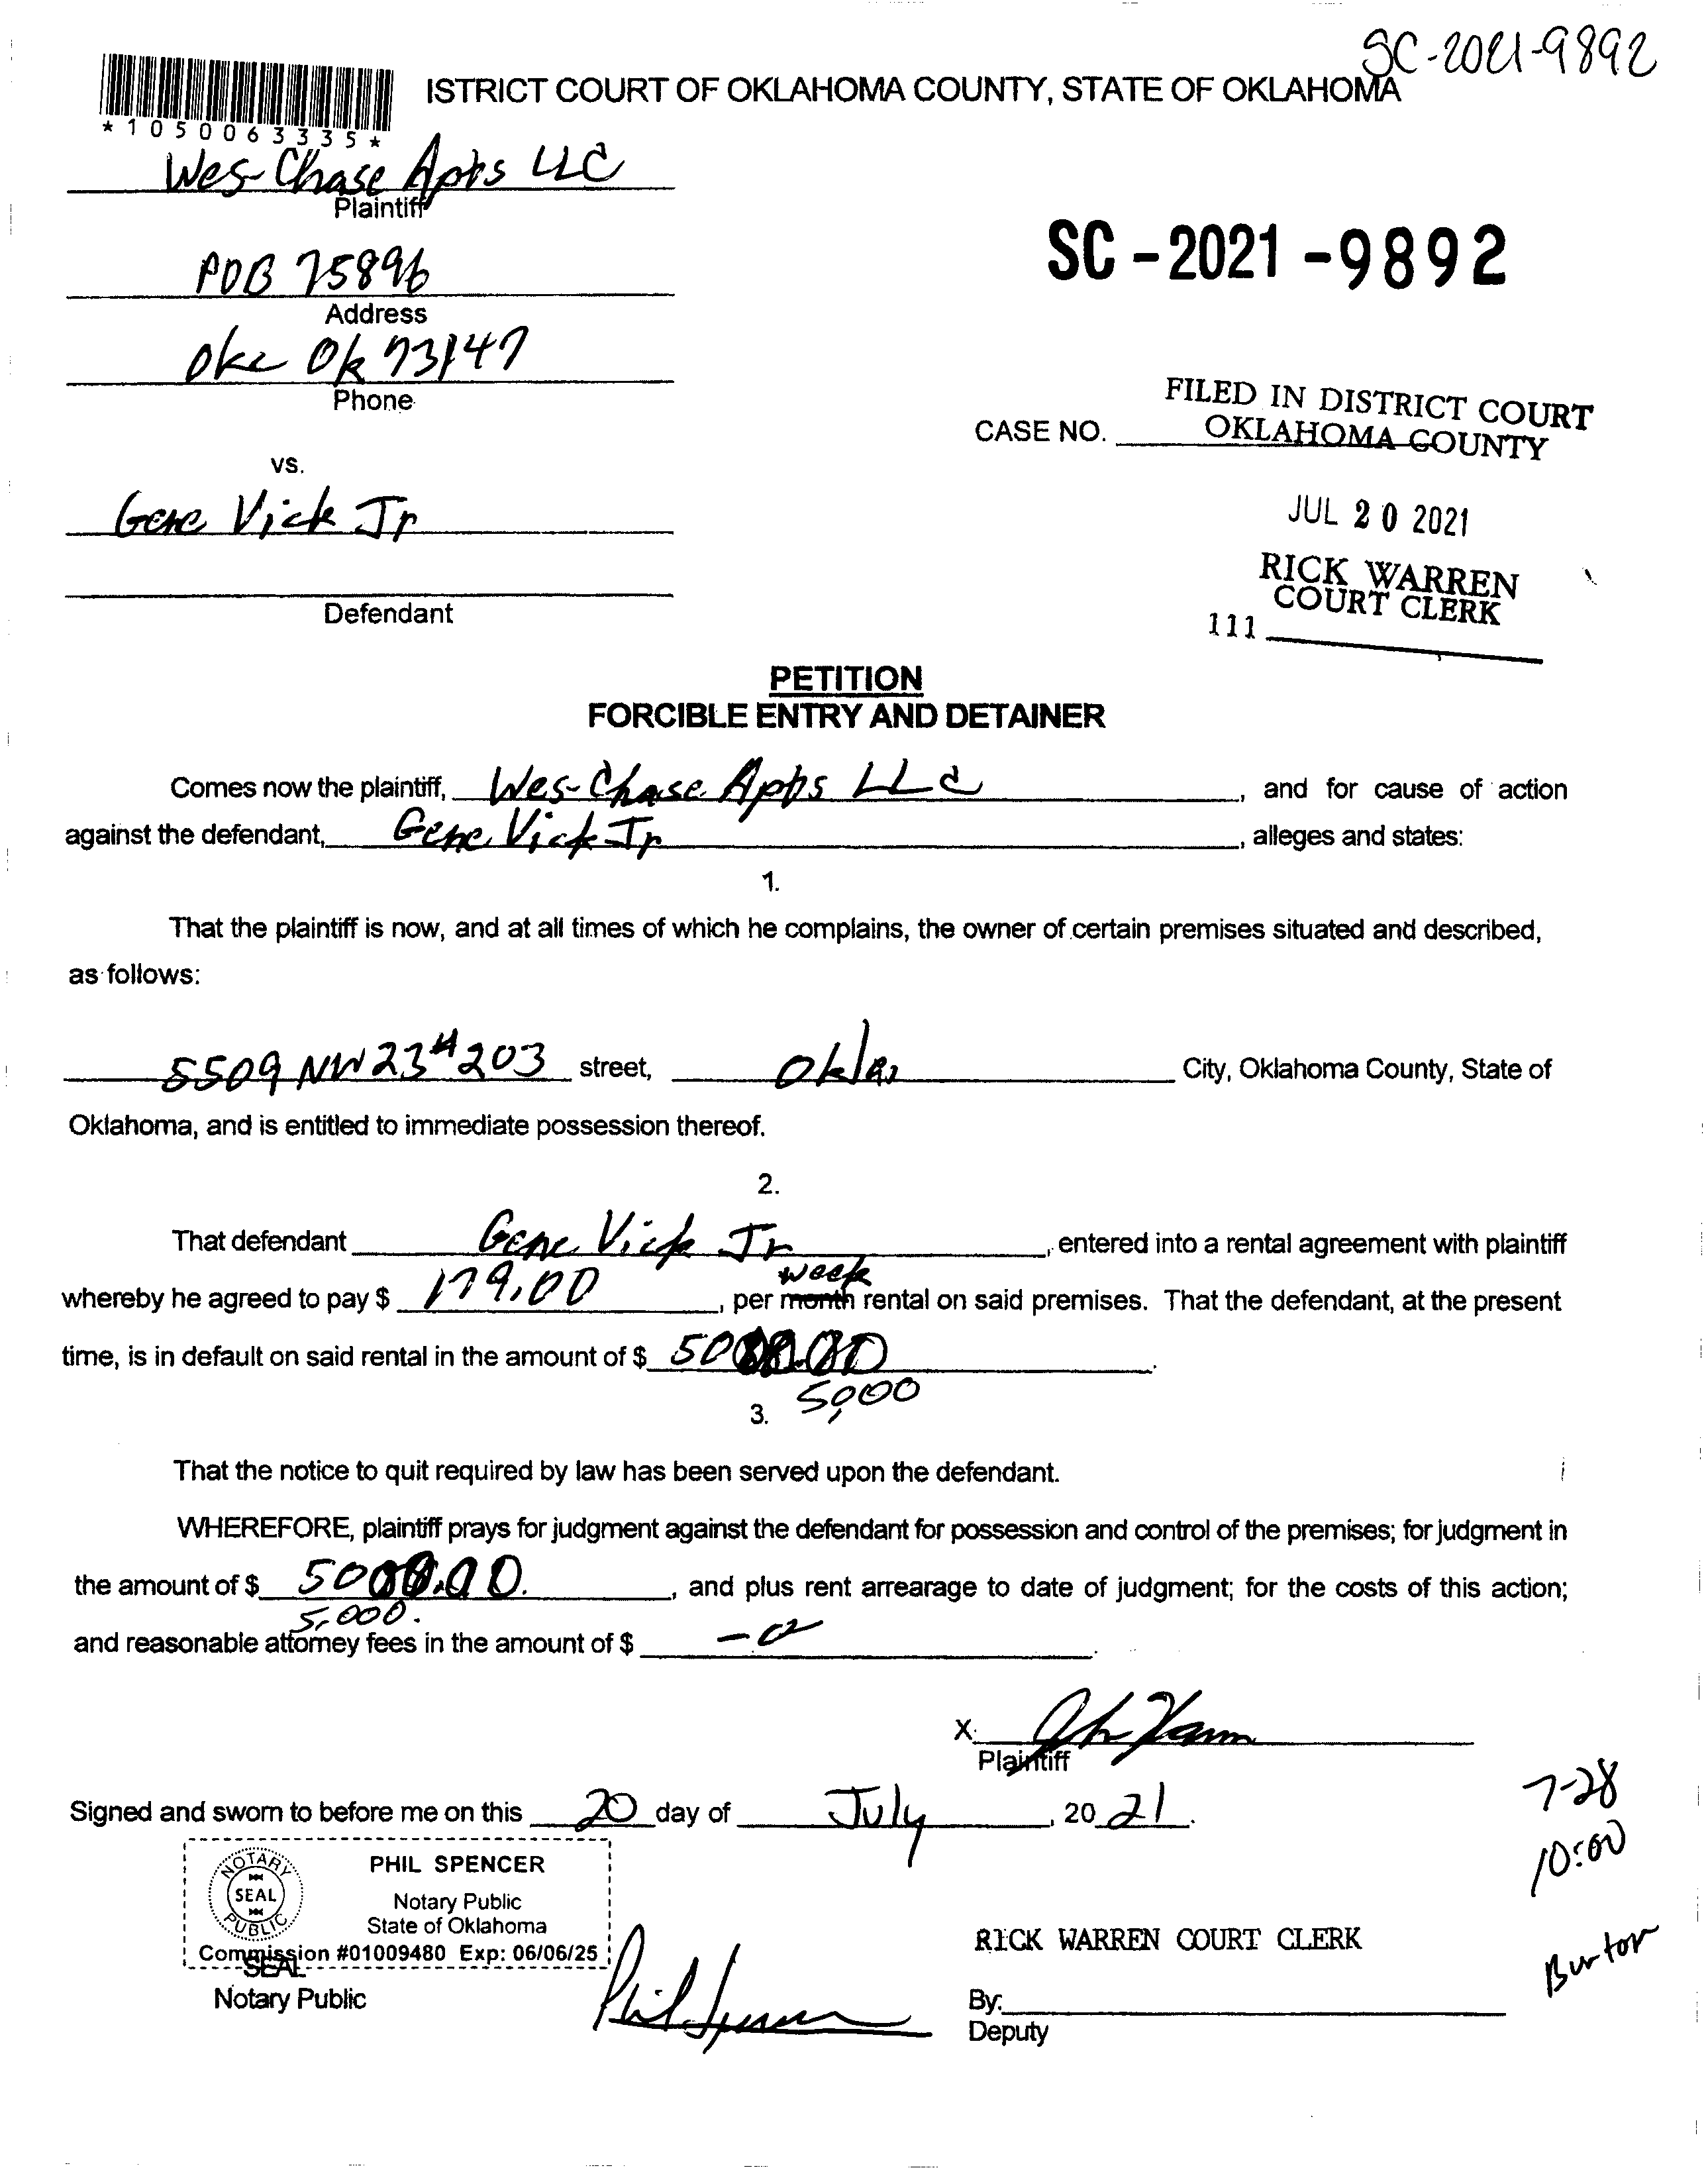 SC-2021-9892
ISTRICT COURT OF OKLAHOMA COUNTY, STATE OF OKLAHOMA
*1050063335*
Wes-Chase Apts LLC
Plaintiff
SC-2021-9892
POB 75896
Address
Okc Ok 73147
Phone
FILED IN DISTRICT COURT
CASE NO. OKLAHOMA COUNTY
vs.
Gene Vick Jr
JUL 20 2021
RICK WARREN
COURT CLERK
Defendant
111
PETITION
FORCIBLE ENTRY AND DETAINER
Comes now the plaintiff, Wes-Chase Apts LLC, and for cause of action
against the defendant, Gene Vick Jr, alleges and states:
1.
That the plaintiff is now, and at all times of which he complains, the owner of certain premises situated and described,
as follows:
5509 NW 23 # 203 street, Okla City, Oklahoma County, State of
Oklahoma, and is entitled to immediate possession thereof.
2.
That defendant Gene Vick Jr, entered into a rental agreement with plaintiff
week
whereby he agreed to pay $ 179.00, per month rental on said premises. That the defendant, at the present
time, is in default on said rental in the amount of $ 5000.00.
5,000
3.
That the notice to quit required by law has been served upon the defendant.
WHEREFORE, plaintiff prays for judgment against the defendant for possession and control of the premises; for judgment in
the amount of $ 5000.00., and plus rent arrearage to date of judgment; for the costs of this action;
5,000.
and reasonable attorney fees in the amount of $
X
Plaintiff
7-28
Signed and sworn to before me on this 20 day of July, 20 21.
10:00
NOTARY PUBLIC
SEAL
PHIL SPENCER
Notary Public
State of Oklahoma
Commission #01009480 Exp: 06/06/25
RICK WARREN COURT CLERK
Burton
SEAL
Notary Public
Phil Spencer
By:
Deputy